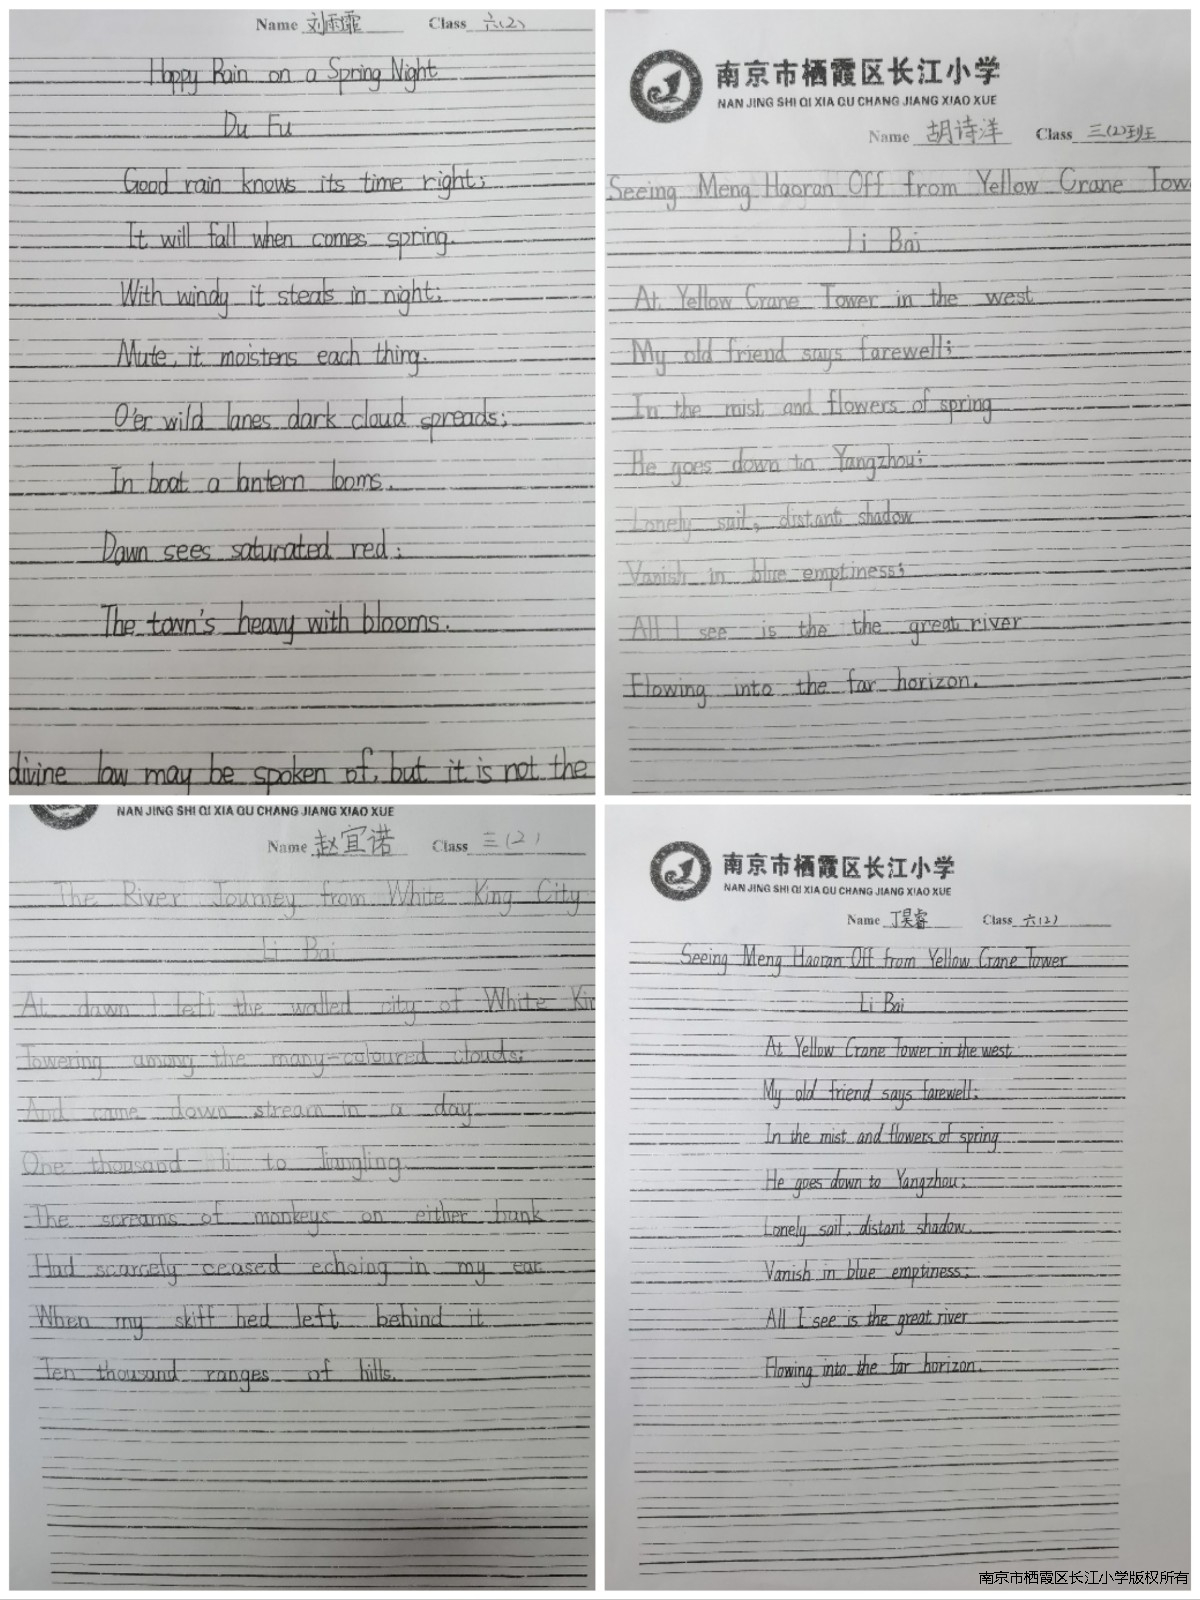 Name 刘雨霏 Class 六(2)
Happy Rain on a Spring Night
Du Fu
Good rain knows its time right;
It will fall when comes spring.
With windy it steals in night;
Mute, it moistens each thing.
O'er wild lanes dark cloud spreads;
In boat a lantern looms.
Dawn sees saturated red;
The town's heavy with blooms.
divine law may be spoken of, but it is not the
南京市栖霞区长江小学
NAN JING SHI QI XIA QU CHANG JIANG XIAO XUE
Name 胡诗洋 Class 三(2)班
Seeing Meng Haoran Off from Yellow Crane Tow
Li Bai
At Yellow Crane Tower in the west
My old friend says farewell;
In the mist and flowers of spring
He goes down to Yangzhou;
Lonely sail, distant shadow
Vanish in blue emptiness;
All I see is the the great river
Flowing into the far horizon.
NAN JING SHI QI XIA QU CHANG JIANG XIAO XUE
Name 赵宜诺 Class 三(2)
The River Journey from White King City
Li Bai
At dawn I left the walled city of White Kin
Towering among the many-coloured clouds;
And came down stream in a day
One thousand li to Jiangling.
The screams of monkeys on either bank
Had scarcely ceased echoing in my ear
When my skiff hed left behind it
Ten thousand ranges of hills.
南京市栖霞区长江小学
NAN JING SHI QI XIA QU CHANG JIANG XIAO XUE
Name 丁昊睿 Class 六(2)
Seeing Meng Haoran Off from Yellow Crane Tower
Li Bai
At Yellow Crane Tower in the west
My old friend says farewell;
In the mist and flowers of spring
He goes down to Yangzhou;
Lonely sail, distant shadow.
Vanish in blue emptiness;
All I see is the great river
Flowing into the far horizon.
南京市栖霞区长江小学版权所有